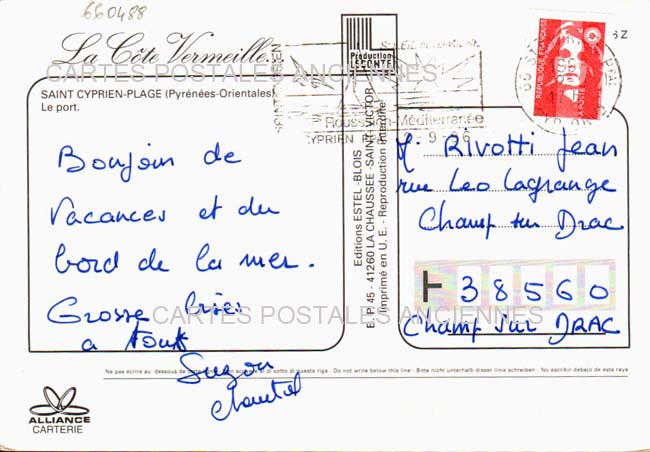 660488
La Côte Vermeille.
CARTES POSTALES ANCIENNES
SAINT CYPRIEN-PLAGE (Pyrénées-Orientales)
Le port.
Bonjour de
Vacances et du
bord de la mer.
Grosse bises
a tous
Suzon
Chantal
ALLIANCE
CARTERIE
Production
LECONTE
Roussillon-Méditerranée
Editions ESTEL-BLOIS
E. P. 45 - 41260 LA CHAUSSEE-SAINT-VICTOR
(Imprimé en U. E. - Reproduction interdite)
REPUBLIQUE FRANÇAISE
LA POSTE
M. Rivotti Jean
rue Leo Lagrange
Champ sur Drac
38560
Champ sur DRAC
CARTES POSTALES ANCIENNES
Ne pas écrire au dessous de cette ligne - di sotto di questa riga - Do not write below this line - Bitte nicht unterhalb dieser linie schreiben - No escribir debajo de esta raya